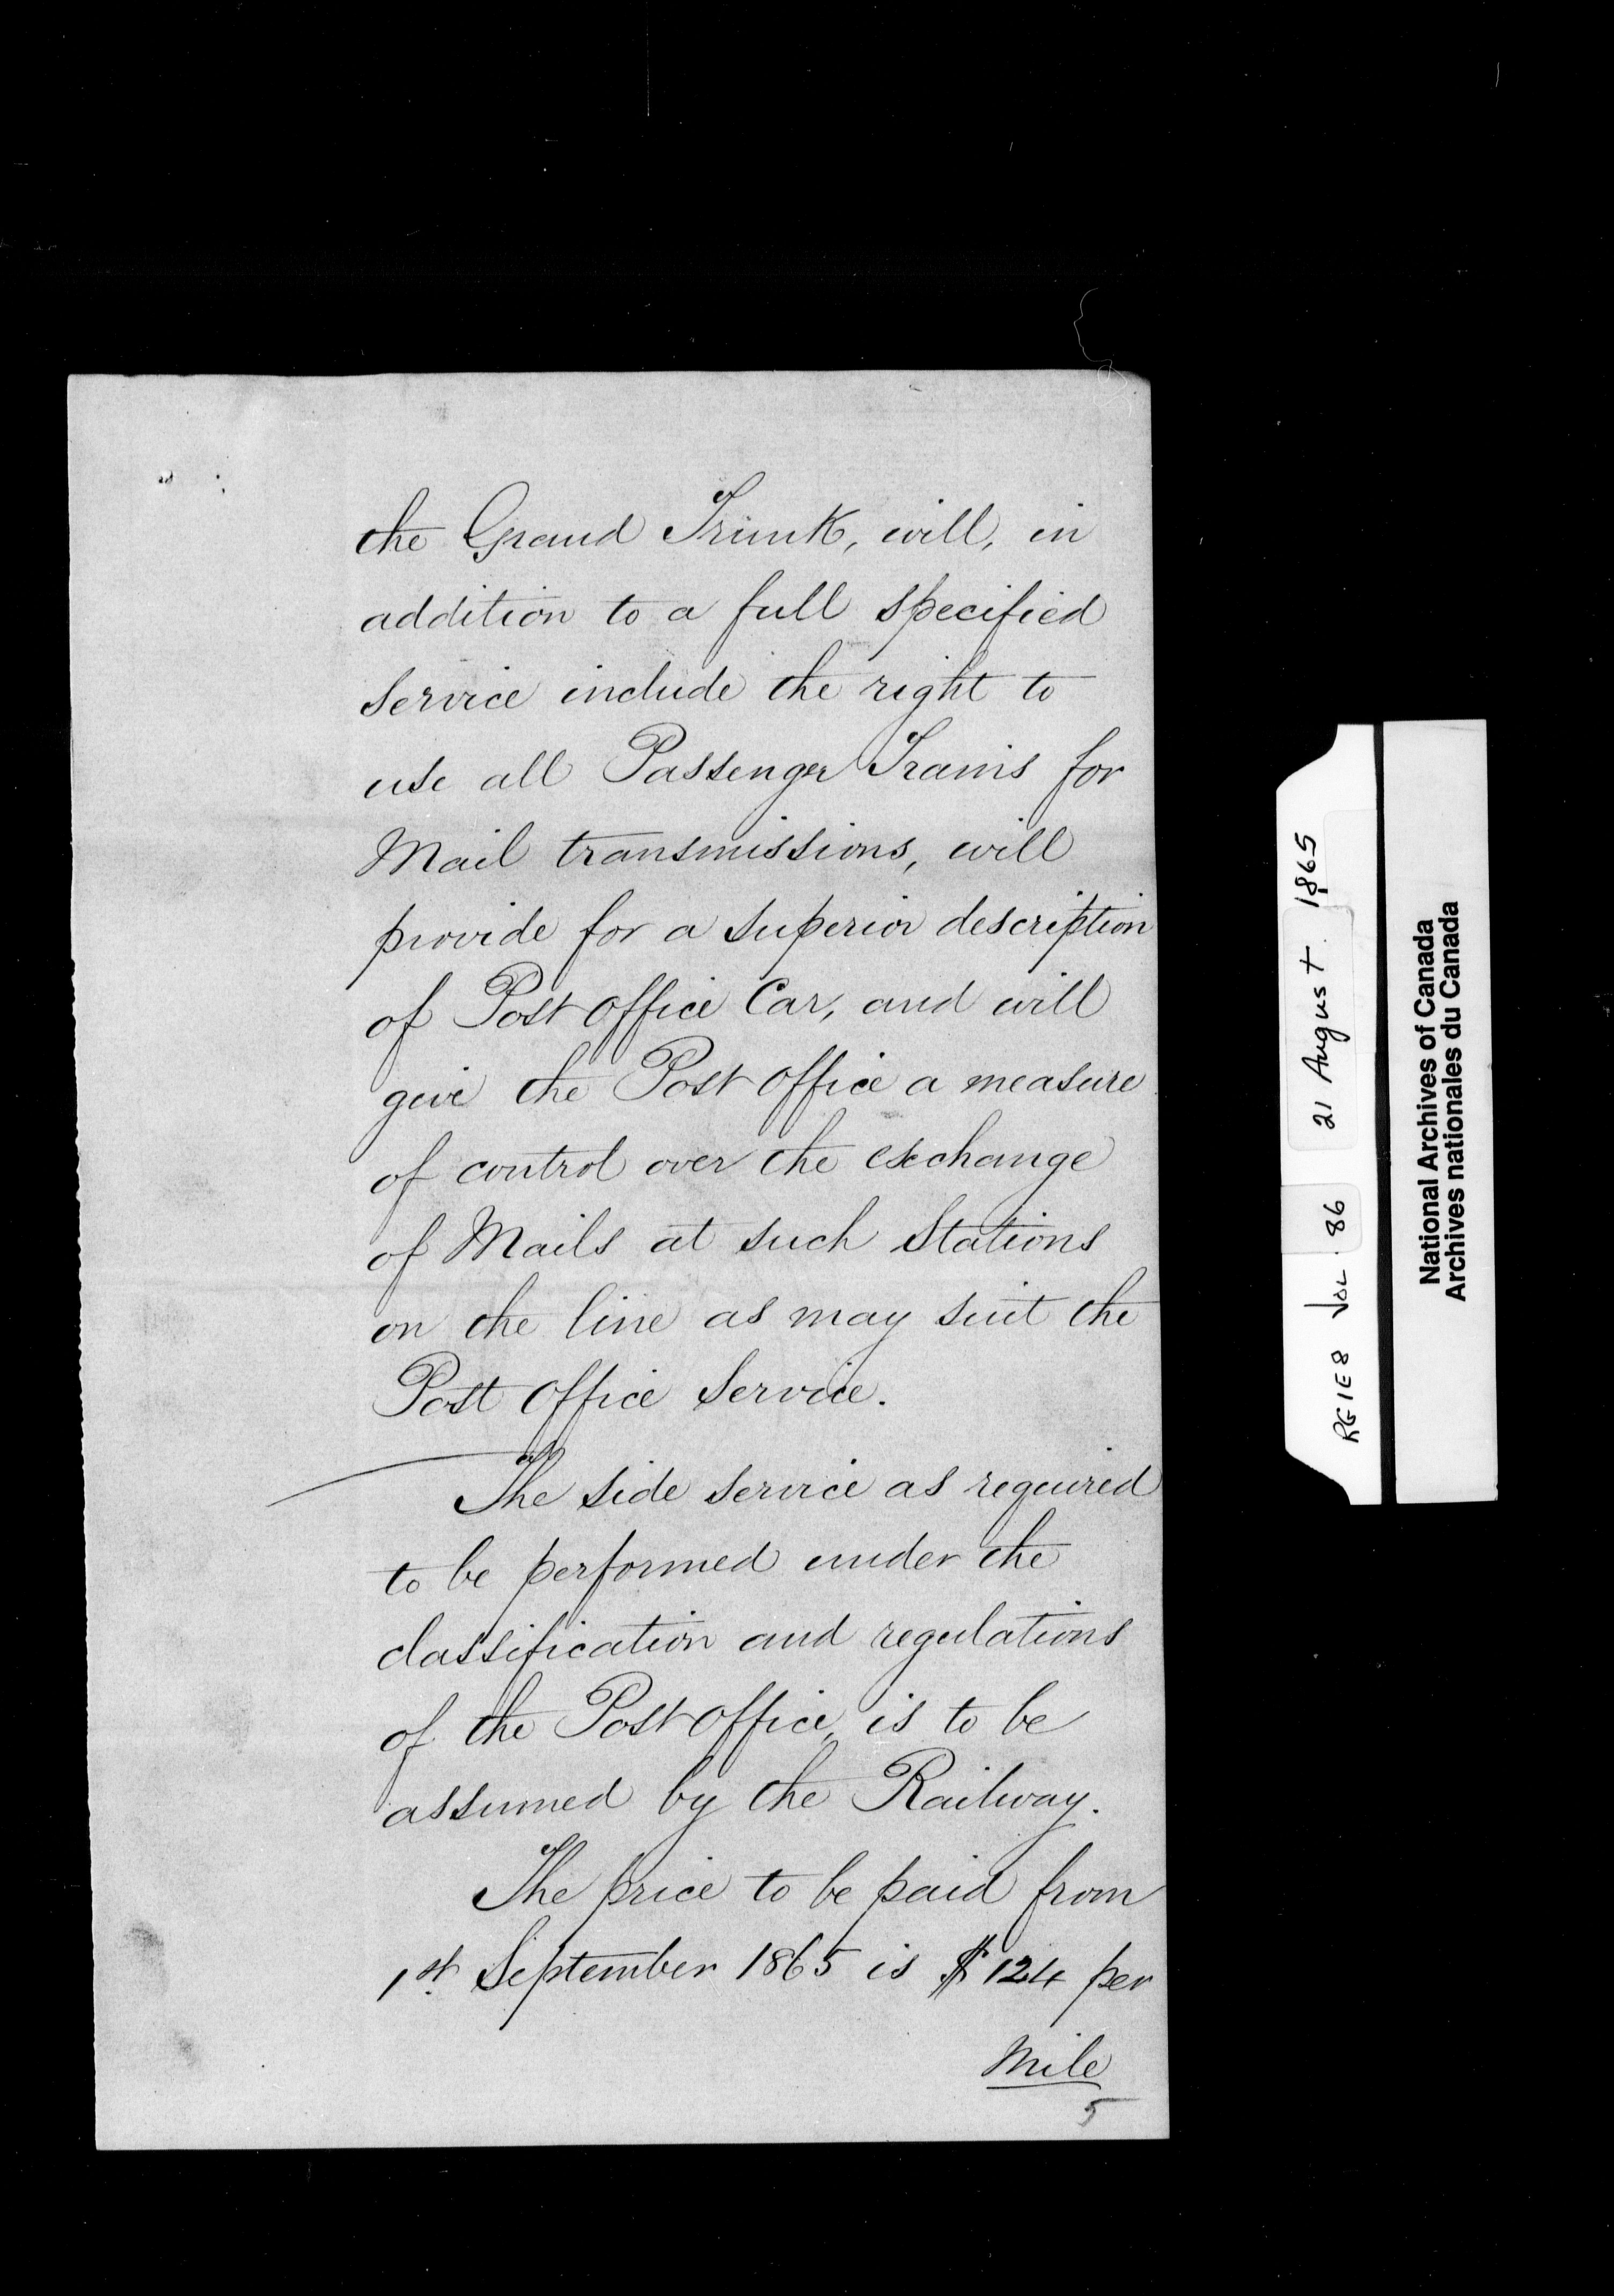 the Grand Trunk, will, in
addition to a full specified
service include the right to
use all Passenger Trains for
Mail transmissions, will
provide for a superior description
of Post office Car, and will
give the Post office a measure
of control over the exchange
of Mails at such Stations
on the line as may suit the
Post office Service.
The side service as required
to be performed under the
classification and regulations
of the Post office, is to be
assumed by the Railway.
The price to be paid from
1st. September 1865 is $124 per
Mile
5
RG1E8 VOL. 86 21 August 1865
National Archives of Canada
Archives nationales du Canada